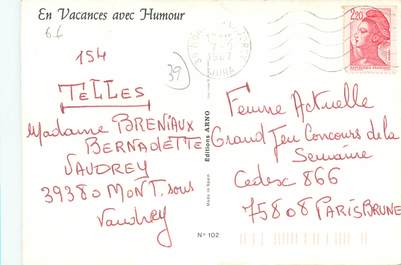 En Vacances avec Humour
154
39
TELLES
Madame BRENIAUX
BERNADETTE
VAUDREY
39380 MONT. sous
Vaudrey
Editions ARNO
Made in Spain
N° 102
1987
JURA
2,20
Femme Actuelle
Grand Jeu Concours de la
Semaine
Cedex 866
75808 PARIS BRUNE